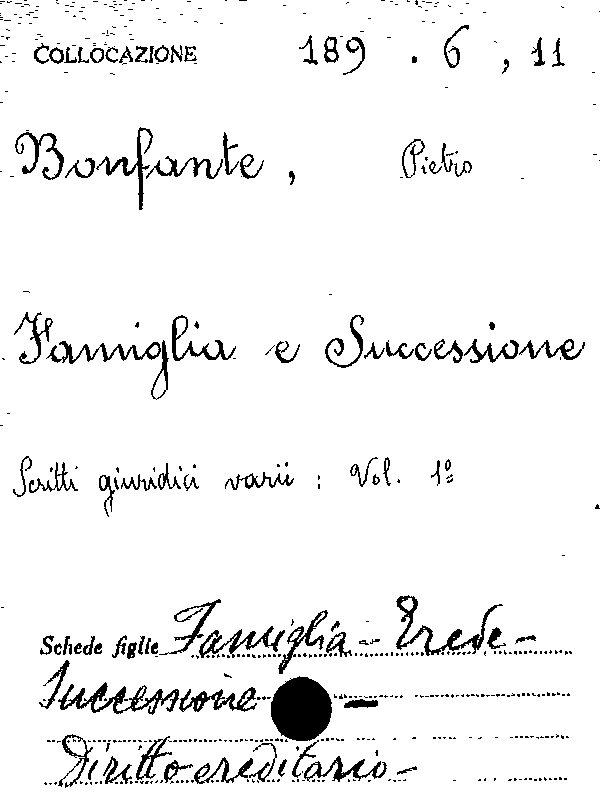 COLLOCAZIONE 189 . 6 , 11
Bonfante , Pietro
Famiglia e Successione
Scritti giuridici varii : Vol. 1º
Schede figlie Famiglia - Erede -
Successione -
Diritto ereditario -